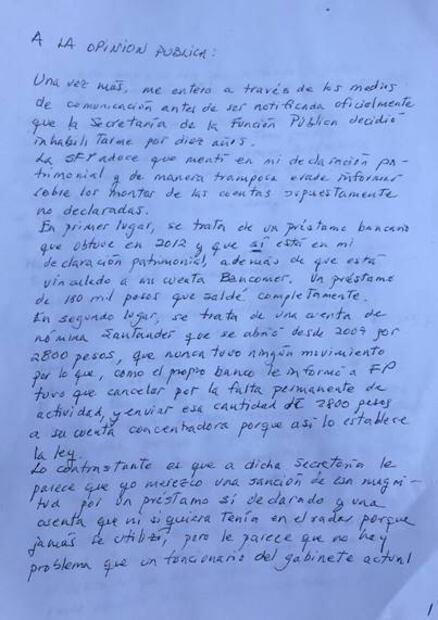 A LA OPINION PUBLICA:
Una vez más, me entero a través de los medios
de comunicación antes de ser notificada oficialmente
que la Secretaría de la Función Pública decidió
inhabilitarme por diez años.
La SFP aduce que mentí en mi declaración pa-
trimonial y de manera tramposa evade informar
sobre los montos de las cuentas supuestamente
no declaradas.
En primer lugar, se trata de un préstamo bancario
que obtuve en 2012 y que sí está en mi
declaración patrimonial, además de que está
vinculado a mi cuenta Bancomer. Un préstamo
de 180 mil pesos que saldé completamente.
En segundo lugar, se trata de una cuenta de
nómina Santander que se abrió desde 2009 por
2800 pesos, que nunca tuvo ningún movimiento
por lo que, como el propio banco le informó a FP
tuvo que cancelar por la falta permanente de
actividad, y enviar esa cantidad de 2800 pesos
a su cuenta concentradora porque así lo establece
la ley.
Lo contrastante es que a dicha Secretaría le
parece que yo merezco una sanción de esa magni-
tud por un préstamo sí declarado y una
cuenta que ni siquiera tenía en el radar porque
jamás se utilizó, pero le parece que no hay
problema que un funcionario del gabinete actual
1